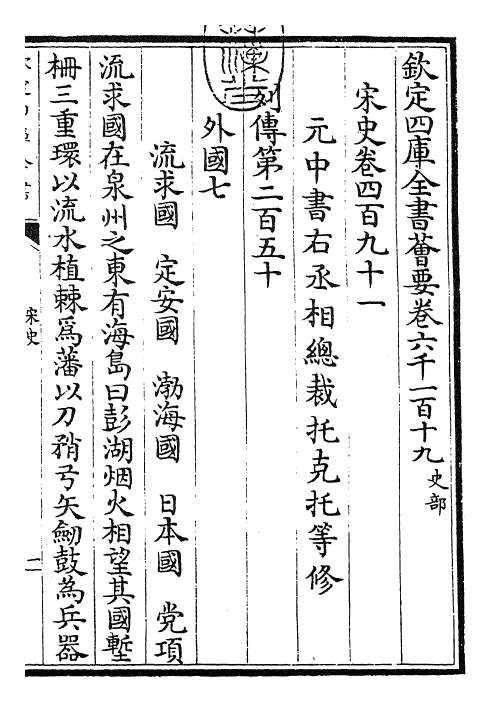 欽定四庫全書薈要卷六千一百十九 史部
宋史卷四百九十一
元中書右丞相總裁托克托等修
列傳第二百五十
外國七
流求國 定安國 渤海國 日本國 党項
流求國在泉州之東有海島曰彭湖烟火相望其國塹
柵三重環以流水植棘為藩以刀矟弓矢劒鼓為兵器
宋史